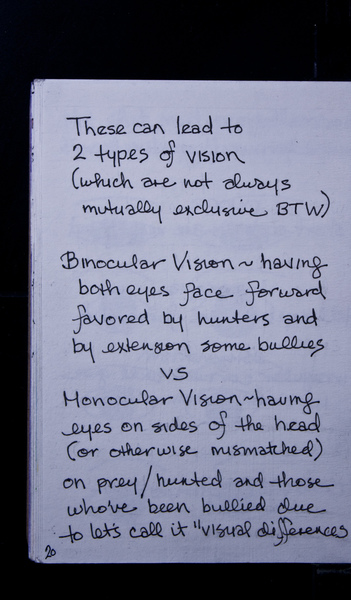 These can lead to
2 types of vision
(which are not always
mutually exclusive BTW)
Binocular Vision ~ having
both eyes face forward
favored by hunters and
by extension some bullies
VS
Monocular Vision ~ having
eyes on sides of the head
(or otherwise mismatched)
on prey/hunted and those
who've been bullied due
to let's call it "visual differences
20